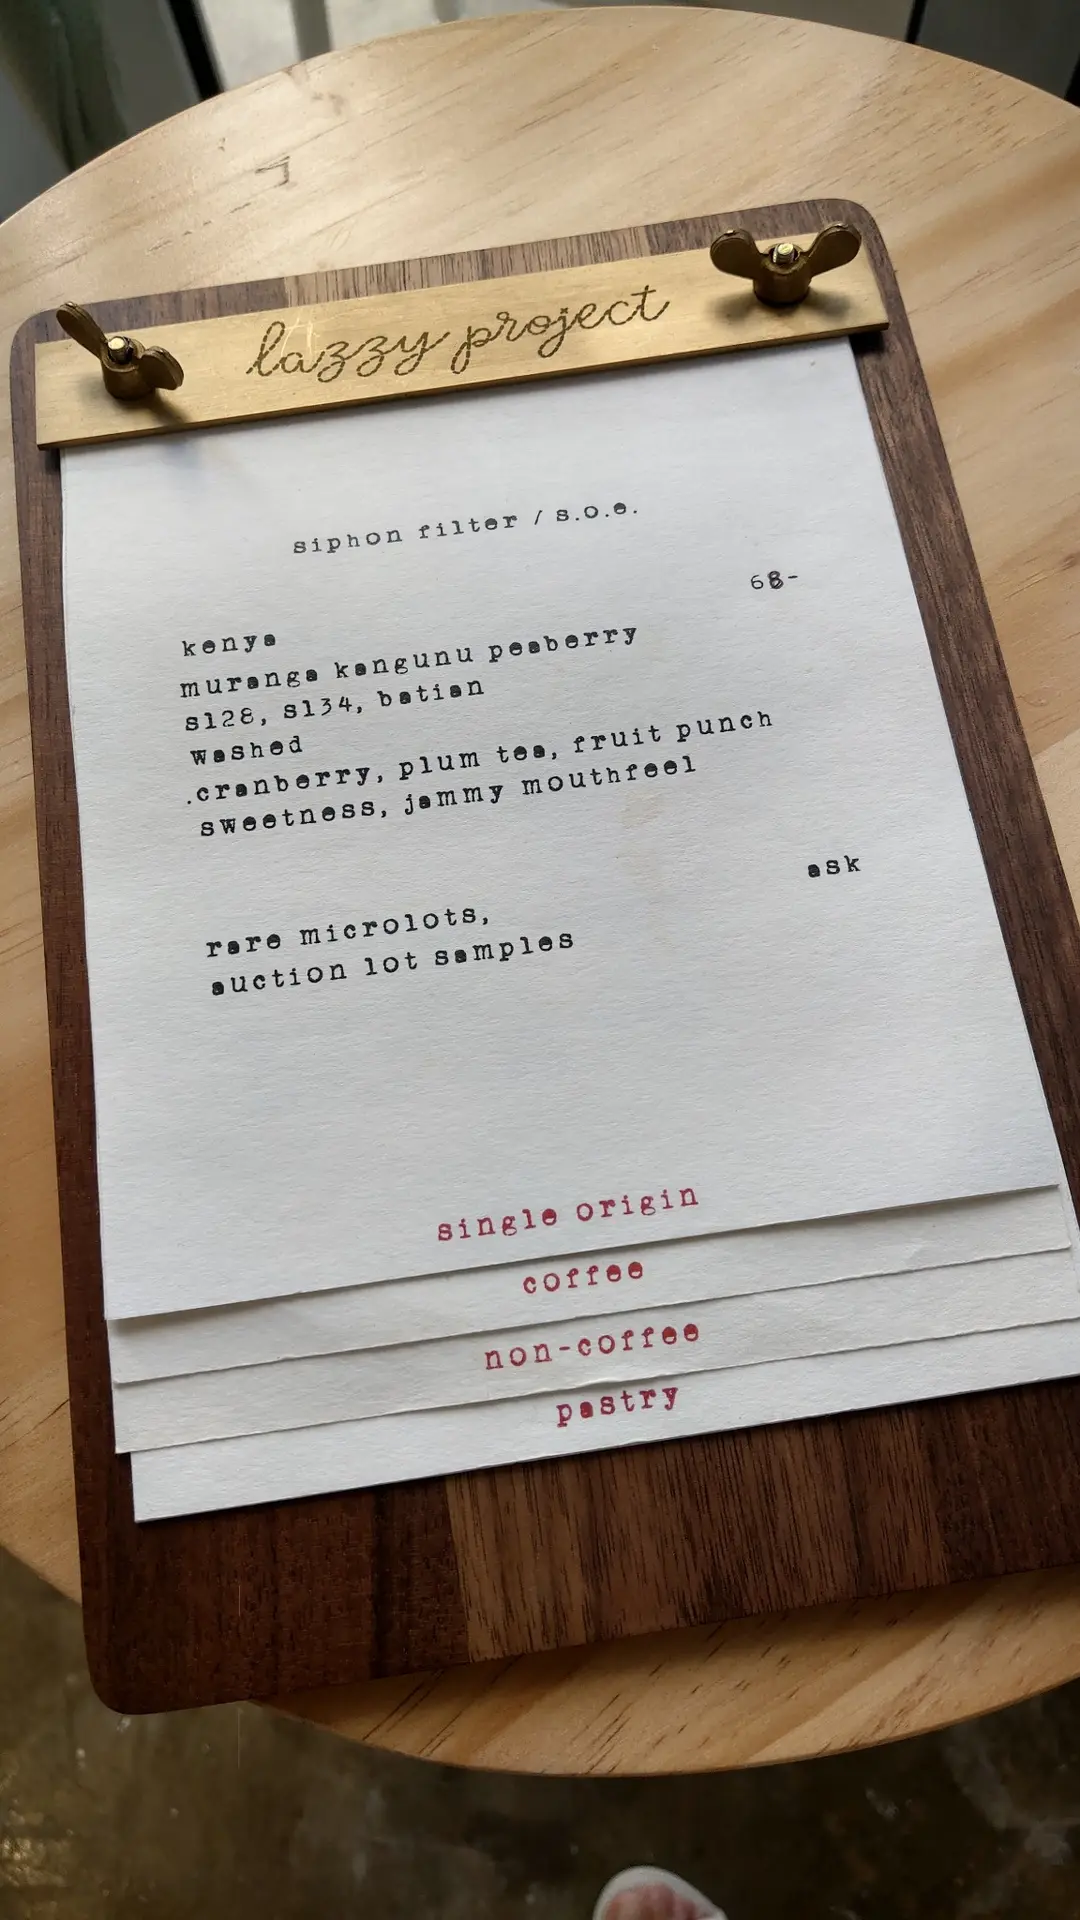 lazzy project
siphon filter / s.o.e.
68-
kenya
muranga kangunu peaberry
sl28, sl34, batian
washed
.cranberry, plum tea, fruit punch
sweetness, jammy mouthfeel
ask
rare microlots,
auction lot samples
single origin
coffee
non-coffee
pastry